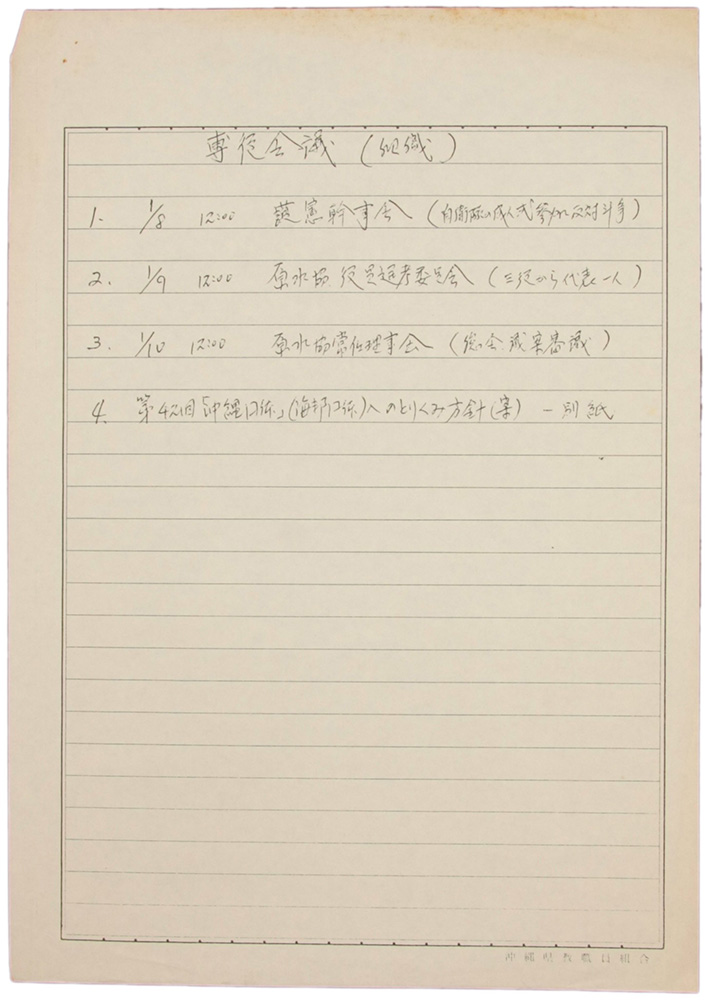 専従会議 (組織)
1. 1/8 12:00 護憲幹事会 (自衛隊の成人式参加反対斗争)
2. 1/9 12:00 原水協 役員選考委員会 (三役から代表一人)
3. 1/10 12:00 原水協常任理事会 (総会議案審議)
4. 第42回「沖縄国体」(海邦国体)へのとりくみ方針(案) ー別紙
沖縄県教職員組合